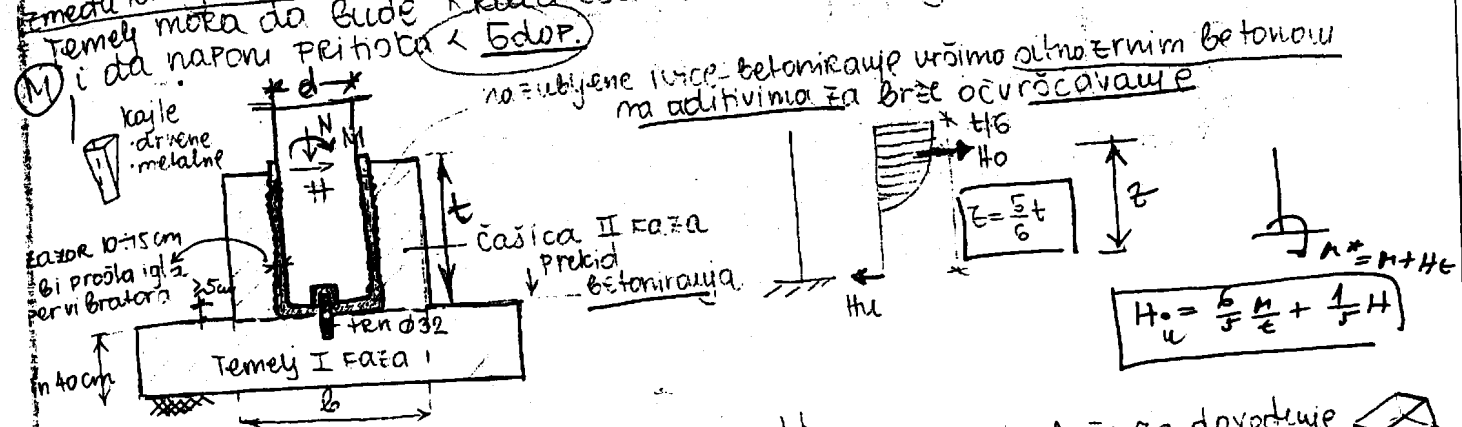 Temelj mora da bude
M i da naponi pritiska < σdop.
nazubljene ivice - betoniranje vršimo sitnozrnim betonom
na aditivima za brže očvršćavanje
kajle
• drvene
• metalne
d
N
M
H
t
t/6
Ho
z = 5/6 t
z
Hu
M* = M + Ht
H = 6/5 M/t + 1/5 H
čašica II faza
prekid
betoniranja
zazor 10÷15cm
bi prošla igla
pervibratora
≥5cm
trn ø32
Temelj I faza
n 40 cm
b
dovođenje